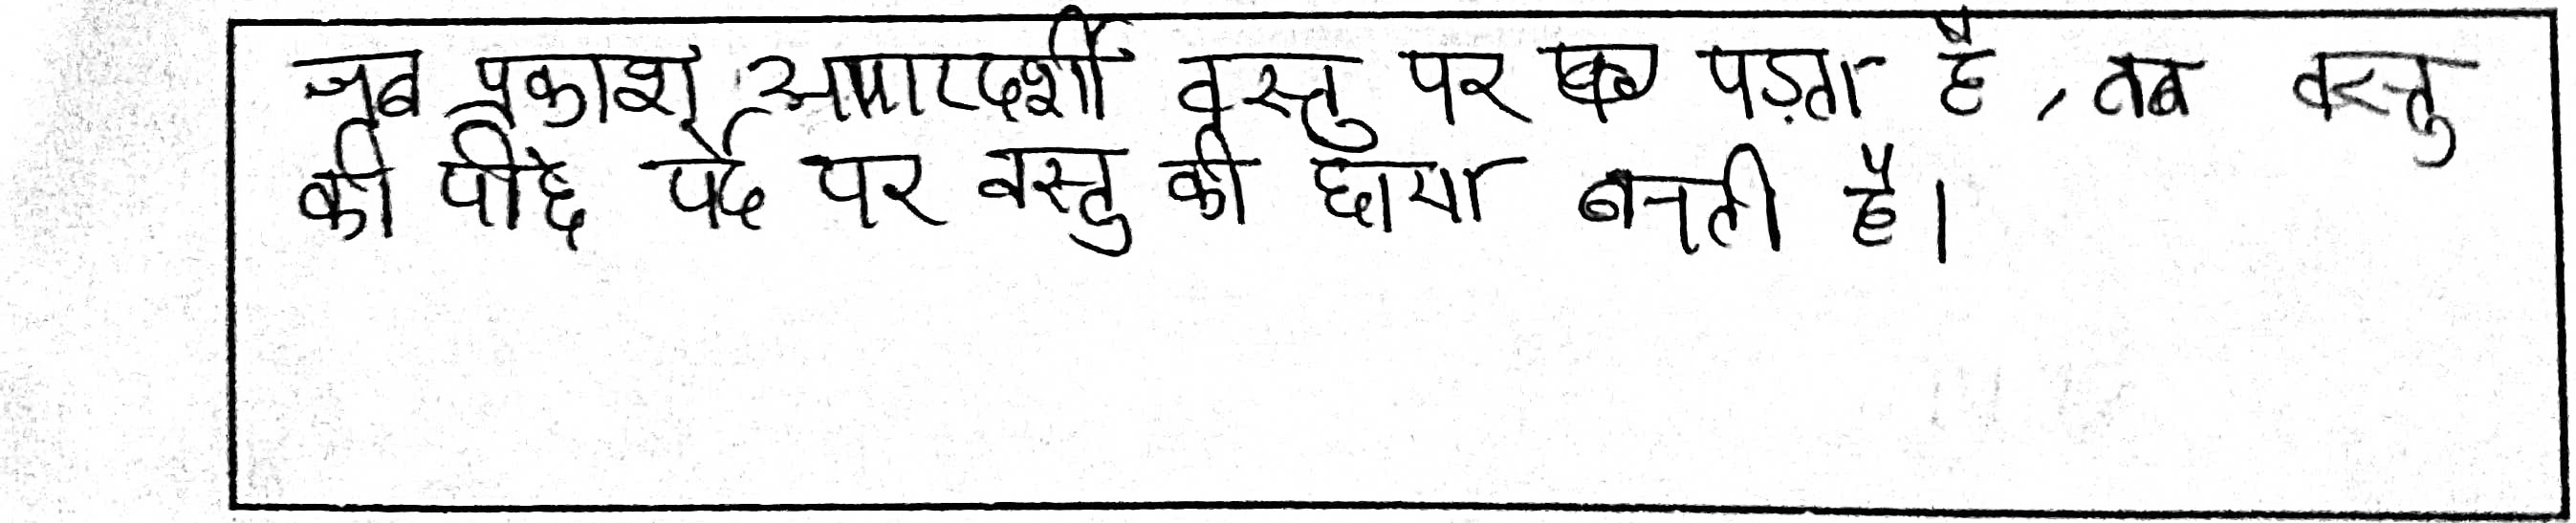 जब प्रकाश अपारदर्शी वस्तु पर पड़ता है, तब वस्तु
की पीछे पर्दे पर वस्तु की छाया बनती है।